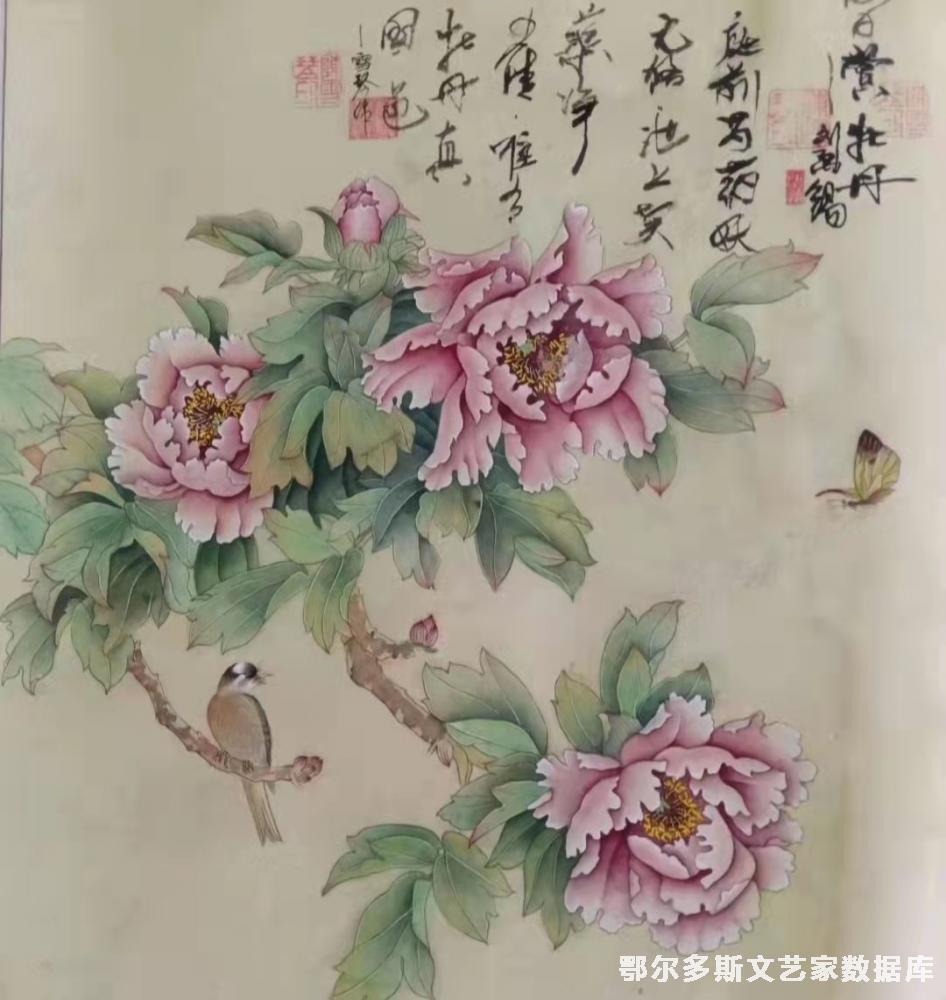 赏牡丹
刘禹锡
庭前芍药妖
无格池上芙
蕖净
少情唯有
牡丹真
国色
鄂尔多斯文艺家数据库